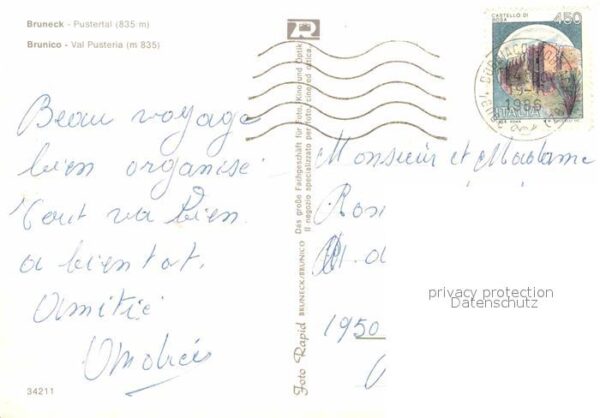 Bruneck - Pustertal (835 m)
Brunico - Val Pusteria (m 835)
Beau voyage
bien organisé
Tout va bien.
a bientot.
Amitié
34211
Foto Rapid BRUNECK/BRUNICO
Das große Fachgeschäft für Foto, Kino und Optik
Il negozio specializzato per foto, cine ed ottica
CASTELLO DI
ROSA
450
ITALIA
1986
Monsieur et Madame
1950
privacy protection
Datenschutz